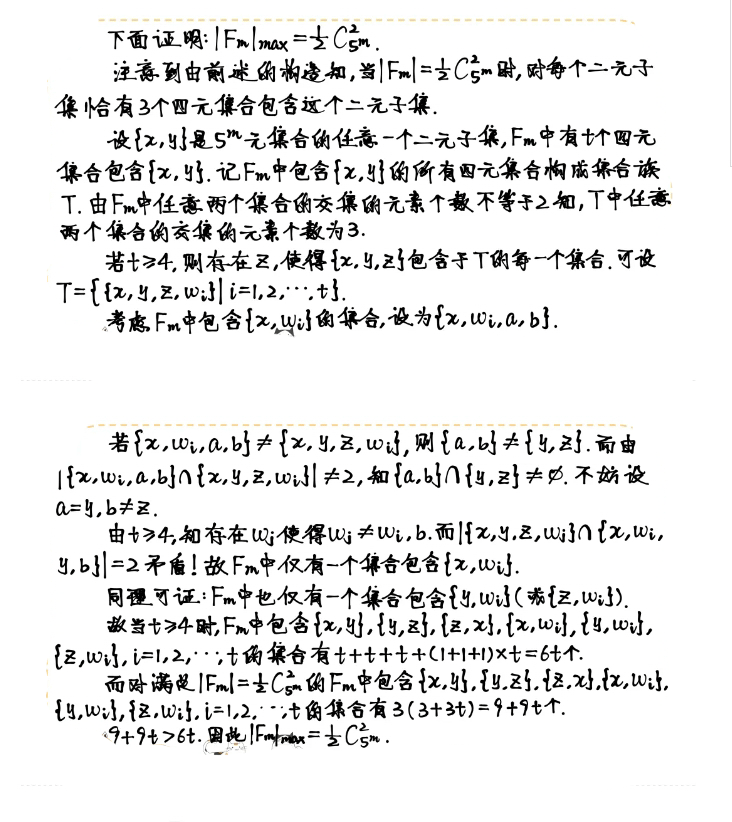 下面证明:|Fm|max=½C²₅ᵐ.
注意到由前述的构造知,当|Fm|=½C²₅ᵐ时,对每个二元子
集恰有3个四元集合包含这个二元子集.
设{x,y}是5ᵐ元集合的任意一个二元子集,Fm中有t个四元
集合包含{x,y}.记Fm中包含{x,y}的所有四元集合构成集合族
T.由Fm中任意两个集合的交集的元素个数不等于2知,T中任意
两个集合的交集的元素个数为3.
若t≥4,则存在z,使得{x,y,z}包含于T的每一个集合.可设
T={{x,y,z,wi}|i=1,2,⋯,t}.
考虑Fm中包含{x,wi}的集合,设为{x,wi,a,b}.
若{x,wi,a,b}≠{x,y,z,wi},则{a,b}≠{y,z}.而由
|{x,wi,a,b}∩{x,y,z,wi}|≠2,知{a,b}∩{y,z}≠∅.不妨设
a=y,b≠z.
由t≥4,知存在wj使得wj≠wi,b.而|{x,y,z,wj}∩{x,wi,
y,b}|=2矛盾!故Fm中仅有一个集合包含{x,wi}.
同理可证:Fm中也仅有一个集合包含{y,wi}(或{z,wi}).
故当t≥4时,Fm中包含{x,y},{y,z},{z,x},{x,wi},{y,wi},
{z,wi},i=1,2,⋯,t的集合有t+t+t+(1+1+1)×t=6t个.
而对满足|Fm|=½C²₅ᵐ的Fm中包含{x,y},{y,z},{z,x},{x,wi},
{y,wi},{z,wi},i=1,2,⋯,t的集合有3(3+3t)=9+9t个.
9+9t>6t.因此|Fm|max=½C²₅ᵐ.